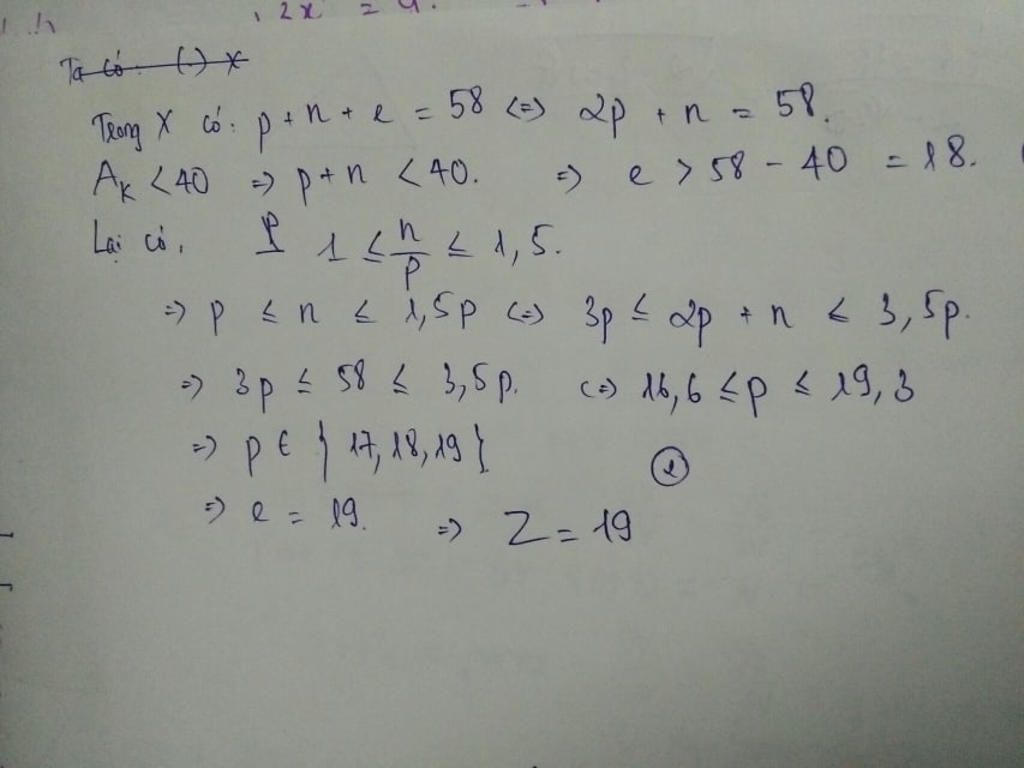 2x = 9.
Ta có: (.) x
Trong X có: p + n + e = 58 <=> 2p + n = 58.
A_K < 40 => p + n < 40. => e > 58 - 40 = 18.
Lại có, 1 ≤ n/p ≤ 1,5.
=> p ≤ n ≤ 1,5p <=> 3p ≤ 2p + n ≤ 3,5p.
=> 3p ≤ 58 ≤ 3,5p. <=> 16,6 ≤ p ≤ 19,3
=> p ∈ {17, 18, 19}
=> e = 19. => Z = 19